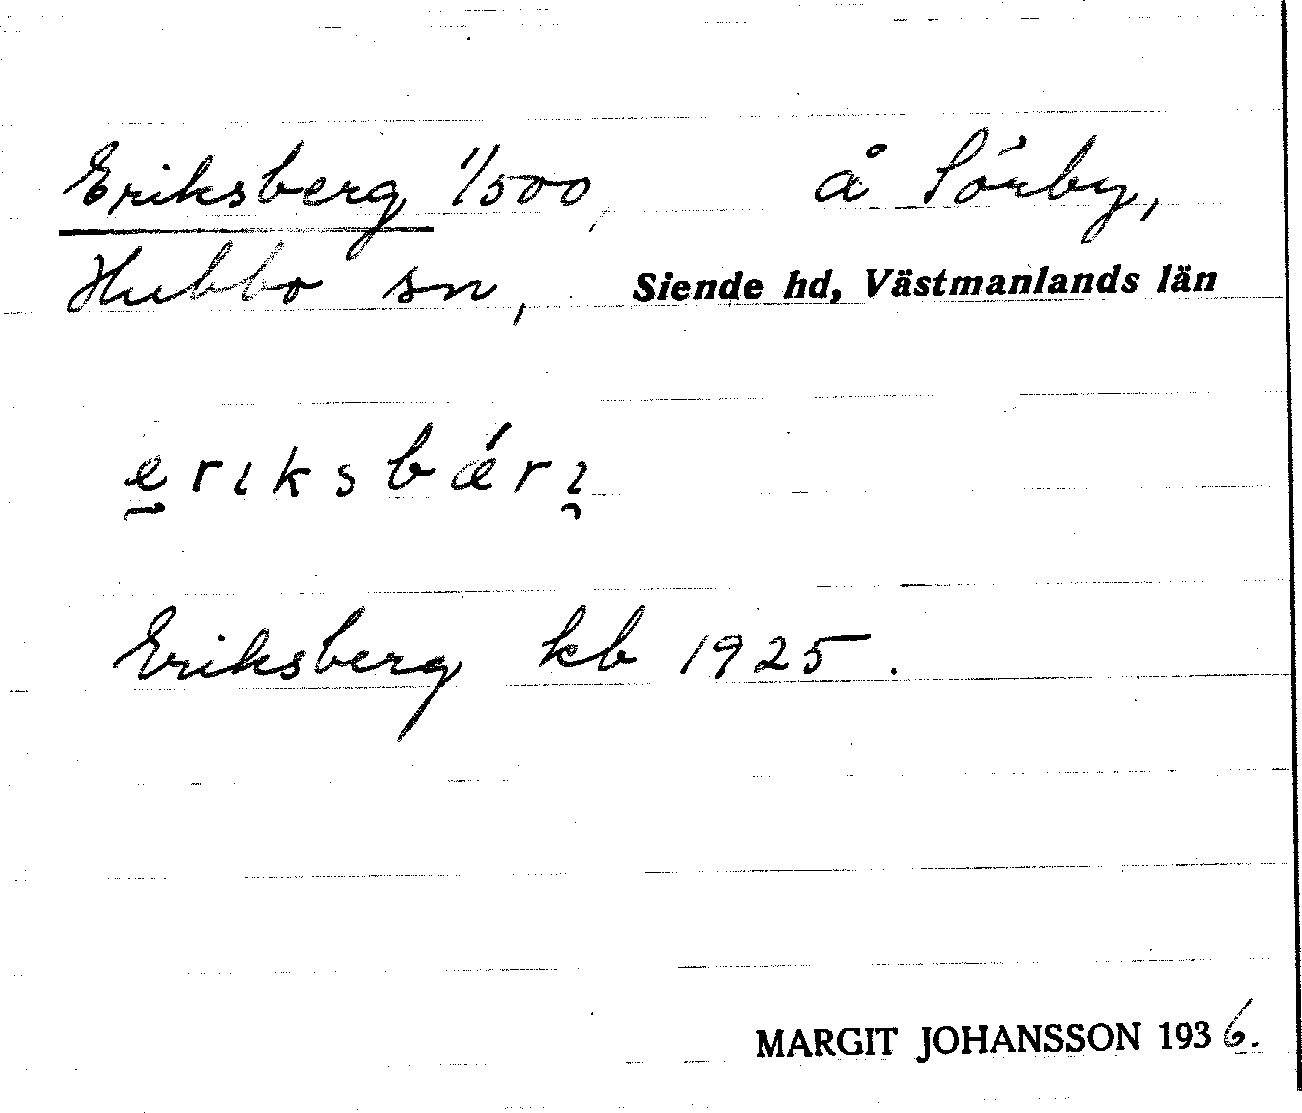 Eriksberg 1/500, å Sörby,
Hubbo sn, Siende hd, Västmanlands län
e̱rıksbǽrı̭
Eriksberg kb 1925.
MARGIT JOHANSSON 1936.